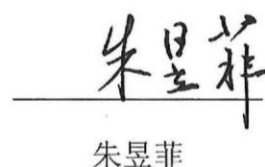 朱昱菲
朱昱菲